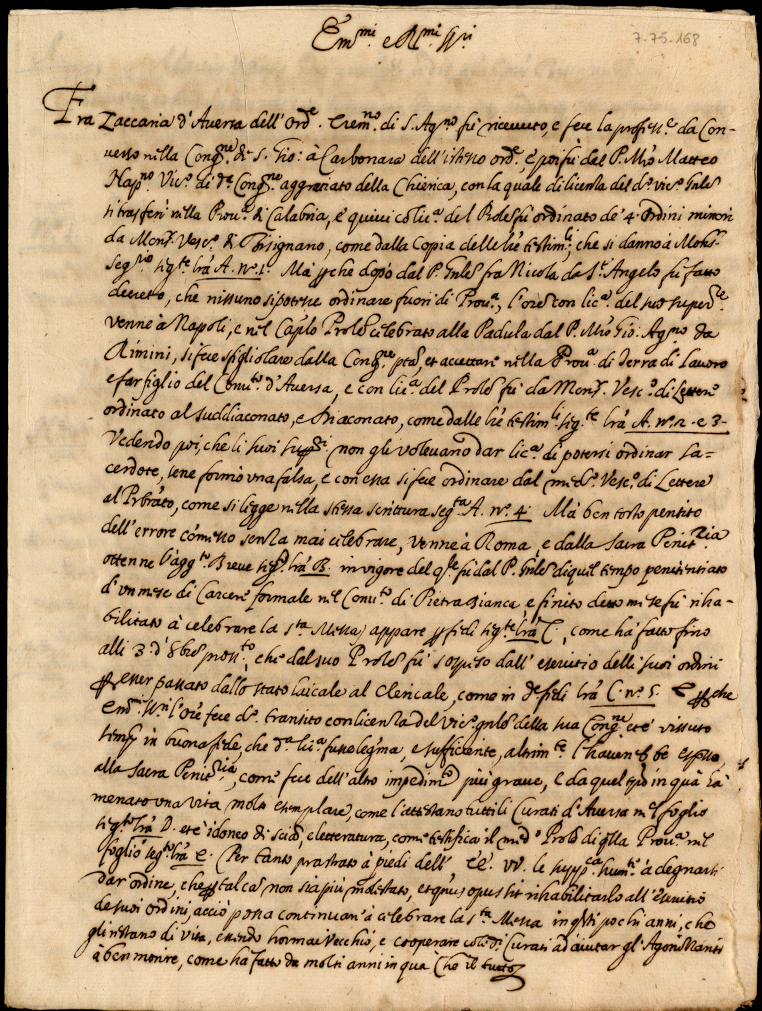 Em.mi e R.mi SS.ri
7-75-168
Fra Zaccaria d'Auersa dell'Ord.e Erem.no di S. Ag.no fù riceuuto, e fece la profess.e da Con-
uerso nella Cong.ne di S. Gio: à Carbonara dell'istesso ord.e e poi fu dal P. M.ro Matteo
Nap.no Vic.o di d.a Cong.ne aggratiato della Chierica, con la quale di licenza del d.o vic.o Gn̄le
si trasferì nella Prou.a di Calabria, e quiui cō lic.a del Prole fù ordinato de' 4 ordini minori
da Mons.r Vesc.o di Bisignano, come dalla Copia delle lr̄e testim.li, che si danno à Mons.r
Seg.rio seg.te lr̄a A. n.o 1. Mà perche dopò dal P. Gn̄le fra Nicola da S.t Angelo fù fatto
decreto, che nissuno si potesse ordinare fuori di Prou.a, l'ore con lic.a del suo super.re
venne à Napoli, e nel Cap̄lo Prole celebrato alla Padula dal P. M.ro Gio: Ag.no da
Rimini, si fece sfigliolare dalla Cong.ne p̄ta, et accettare nella Prou.a di Terra di Lauoro
e far figlio del Conu.to d'Auersa, e con lic.a del Prole fù da Mons.r Vesc.o di Lettere
ordinato al suddiaconato, e Diaconato, come dalle lr̄e testim.li seg.te lr̄a A. n.o 2. e 3.
Vedendo poi, che li suoi sup.ri non gli voleuano dar lic.a di potersi ordinar Sa=
cerdote, sene formò una falsa, e con essa si fece ordinare dal med.o Vesc.o di Lettere
al Prb̄rato, come si legge nella stessa scrittura seg.ta A. n.o 4. Mà ben tosto pentito
dell'errore cōmesso senza mai celebrare, venne à Roma, e dalla Sacra Penit.ria
ottenne l'agg.to Breue seg.to lr̄a B. in vigore del q.le fù dal P. Gn̄le di quel tempo penitentiato
d'un mese di Carcere formale nel Conu.to di Pietra Bianca, e finito detto mese fù riha-
bilitato à celebrare la S.ta Messa, appare per fedi seg.te lr̄a C., come hà fatto fino
alli 3. d'8bre pross.to, che dal suo Prole fù sospeso dall'esercitio delli suoi ordini
per esser passato dallo stato laicale al Clericale, come in d.e fedi lr̄a C. n.o 5. E perche
Em.mi SS.ri l'Ore fece d.o transito con licenza del Vic.o gn̄le della sua Cong.ne et è vissuto
semp.e in buona fede, che d.a lic.a fusse legma, e sufficiente, altrim.te l'hauerebbe esposto
alla Sacra Penit.ria, come fece dell'altro impedim.to più graue, e da quel tp̄o in quà hà
menato una vita molto esemplare, come l'attestano tutti li Curati d'Auersa nel foglio
seg.to lr̄a D. et è idoneo di sciēa, e letteratura, come testifica il med.o Prole di q̄lla Prou.a nel
foglio seg.to lr̄a E. Per tanto prostrato à piedi dell' EE. VV. le supp.ca hum.te à degnarsi
dar ordine, che per tal ca.a non sia più molestato, et q̄tus opus sit rihabilitarlo all'esercitio
de suoi ordini, acciò possa continuare à celebrare la S.ta Messa in q̄sti pochi anni, che
gli restano di vita, essendo hormai Vecchio, e cooperare colli d.i Curati ad aiutar gl'Agonizzanti
à ben morire, come hà fatto da molti anni in quà Che il tutto